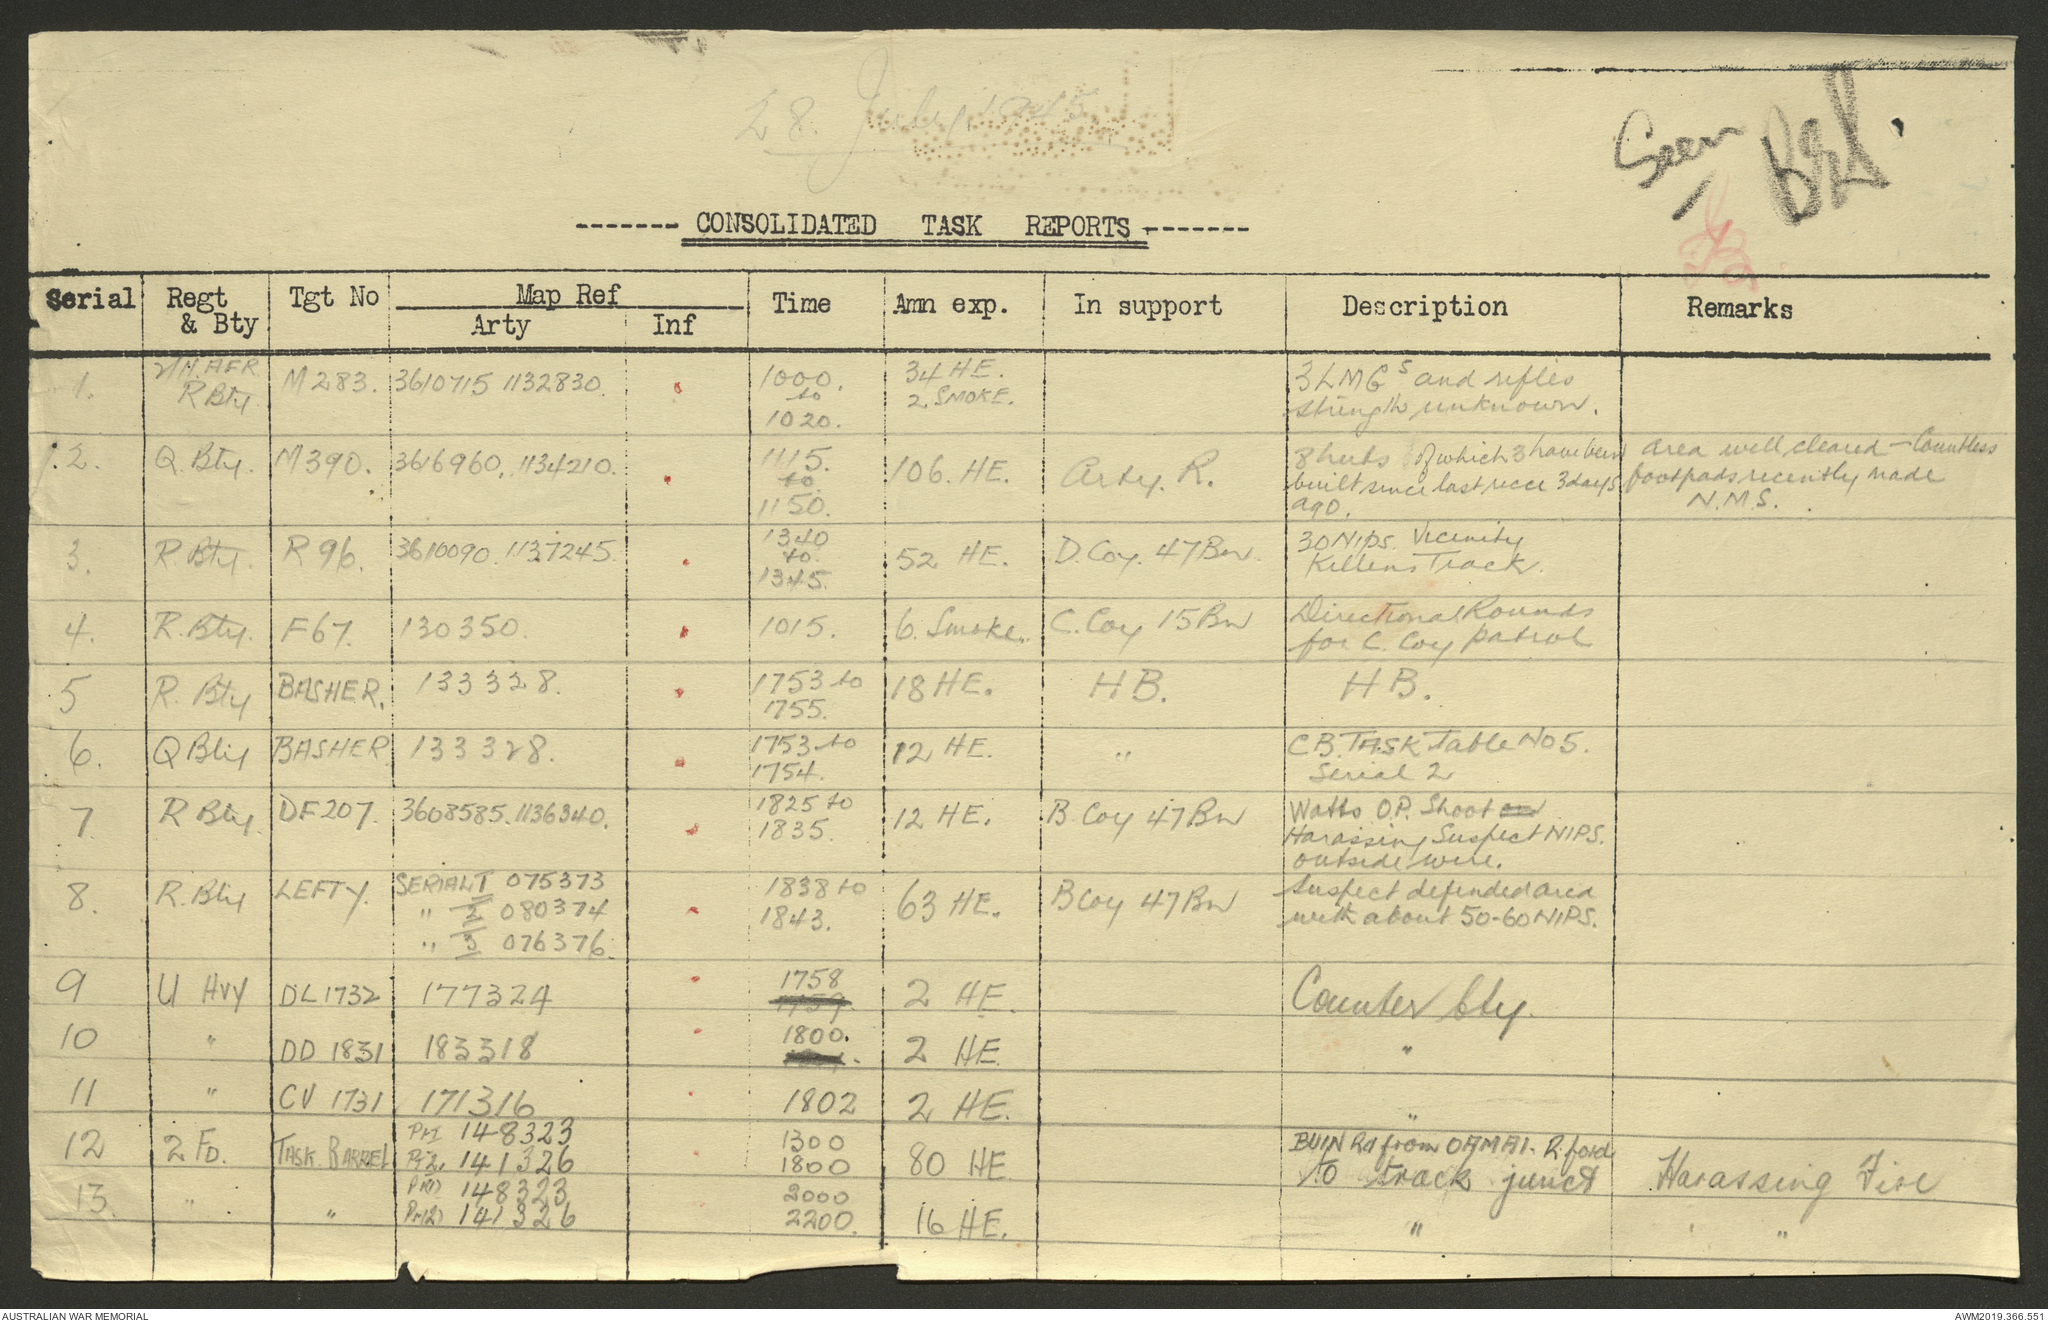 28 July, 1945
Seen
------- CONSOLIDATED TASK REPORTS -------
Serial Regt & Bty Tgt No Map Ref Arty Inf Time Amn exp. In support Description Remarks
1. R Bty. M 283. 3610715 1132830. 1000. to 1020. 34 HE. 2 SMOKE. 3 LMGs and rifles strength unknown.
2. Q. Bty. M390. 3616960. 1134210. 1115. to 1150. 106. HE. Arty. R. 8 huts of which 3 have been built since last recce 3 days ago. area well cleared - Countless footpads recently made N.M.S.
3. R. Bty. R 96. 3610090. 1137245. 1340 to. 1345. 52 HE. D. Coy. 47 Bn. 30 Nips. Vicinity Killens Track.
4. R. Bty. F67. 130350. 1015. 6. Smoke. C. Coy 15 Bn Directional Rounds for C. Coy patrol
5 R. Bty BASHER. 133328. 1753 to 1755. 18 HE. HB. HB.
6. Q Bty BASHER 133328. 1753 to 1754. 12 HE. " C.B. TASK Table No 5. Serial 2
7. R Bty. DF207. 3608585. 1136340. 1825 to 1835. 12 HE. B. Coy 47 Bn Watts O.P. Shoot Harassing Suspect NIPS. outside wire.
8. R. Bty LEFTY. SERIAL 1 075373 " 2 080374 " 3 076376. 1838 to 1843. 63 HE. B Coy 47 Bn Suspect defended area with about 50-60 NIPS.
9 U Hvy DL 1732 177324 1758 2 HE. Counter bty.
10 " DD 1831 183318 1800. 2 HE "
11 " CV 1731 171316 1802 2 HE. "
12 2 FD. TASK BARREL Pt1 148323 Pt2. 141326 1300 1800 80 HE BUIN Rd from OAMAI. R. ford to track junct Harassing Fire
13. " " Pt(1) 148323 Pt(2) 141326 2000 2200. 16 HE. " "
AUSTRALIAN WAR MEMORIAL
AWM2019.366.551